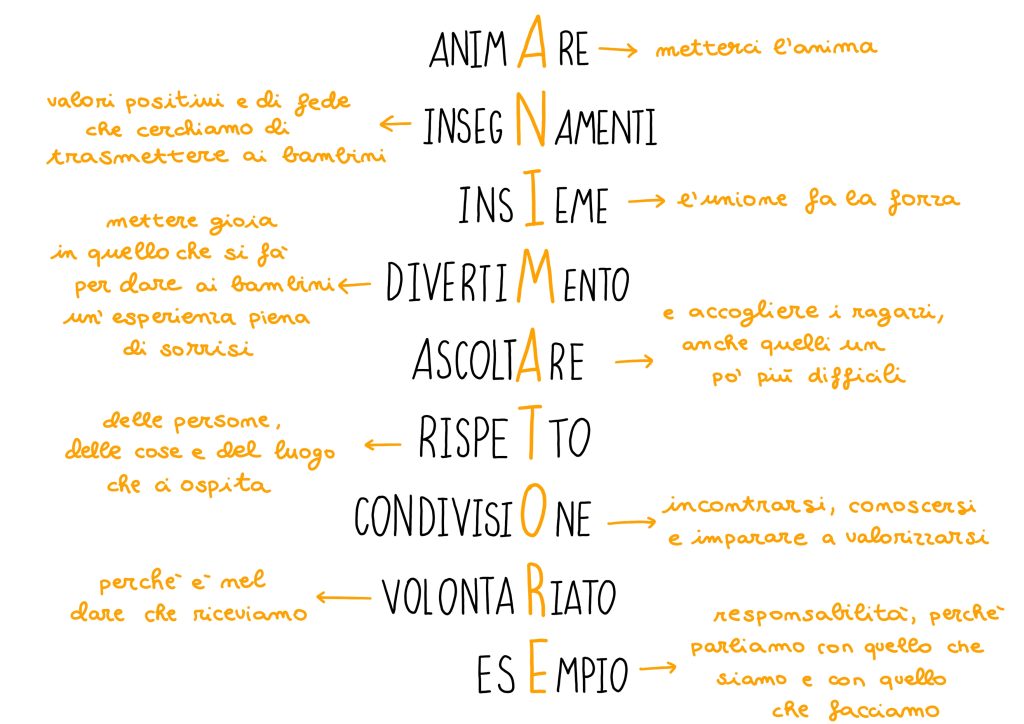 ANIMARE → metterci l'anima
INSEGNAMENTI
valori positivi e di fede
che cerchiamo di
trasmettere ai bambini
INSIEME → l'unione fa la forza
DIVERTIMENTO
mettere gioia
in quello che si fà
per dare ai bambini
un'esperienza piena
di sorrisi
ASCOLTARE
e accogliere i ragazzi,
anche quelli un
pò più difficili
RISPETTO
delle persone,
delle cose e del luogo
che ci ospita
CONDIVISIONE
incontrarsi, conoscersi
e imparare a valorizzarsi
VOLONTARIATO
perchè è nel
dare che riceviamo
ESEMPIO
responsabilità, perchè
parliamo con quello che
siamo e con quello
che facciamo